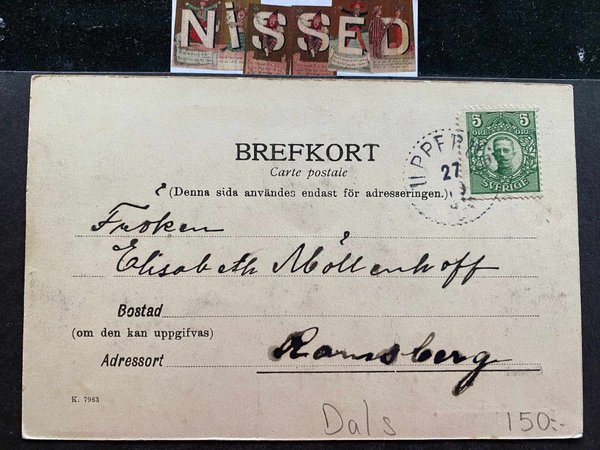 NiSSED
BREFKORT
Carte postale
(Denna sida användes endast för adresseringen.)
5 5
ÖRE ÖRE
SVERIGE
UPPER
27
Fröken
Elisabeth Möllenhoff
Bostad
(om den kan uppgifvas)
Adressort Ramsberg
K. 7983
Dals 150:-